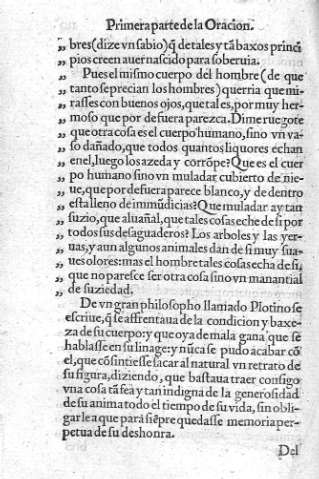 Primera parte de la Oracion.
„ bres (dize vn sabio) q̃ de tales y tã baxos princi
„ pios creen auer nascido para soberuia.
„ Pues el mismo cuerpo del hombre (de que
„ tanto se precian los hombres) querria que mi-
„ rasses con buenos ojos, que tal es, por muy her-
„ moso que por defuera parezca. Dime ruegote
„ que otra cosa es el cuerpo humano, sino vn va-
„ so dañado, que todos quantos liquores echan
„ en el, luego los azeda y corrõpe? Que es el cuer
„ po humano sino vn muladar cubierto de nie-
„ ue, que por defuera parece blanco, y de dentro
„ esta lleno de immũdicias? Que muladar ay tan
„ suzio, que aluañal, que tales cosas eche de si por
„ todos sus desaguaderos? Los arboles y las yer-
„ uas, y aun algunos animales dan de si muy sua-
„ ues olores: mas el hombre tales cosas echa de si,
„ que no paresce ser otra cosa sino vn manantial
„ de suziedad.
De vn gran philosopho llamado Plotino se
escriue, q̃ se affrentaua de la condicion y baxe-
za de su cuerpo: y que oya de mala gana que se
hablasse en su linage: y nũca se pudo acabar cõ
el, que cõsintiesse sacar al natural vn retrato de
su figura, diziendo, que bastaua traer consigo
vna cosa tã fea y tan indigna de la generosidad
de su anima todo el tiempo de su vida, sin obli-
garle a que para siẽpre quedasse memoria per-
petua de su deshonra.
Del